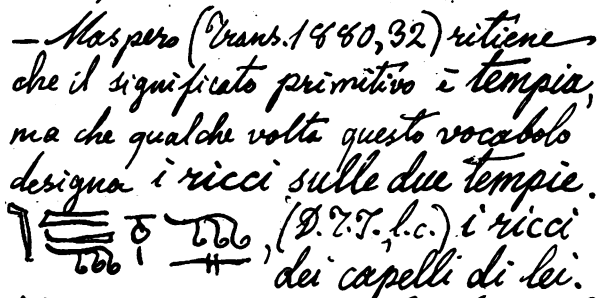 – Maspero (Trans. 1880, 32) ritiene
che il significato primitivo è tempia,
ma che qualche volta questo vocabolo
designa i ricci sulle due tempie.
, (D.T.T., l.c.) i ricci
dei capelli di lei.